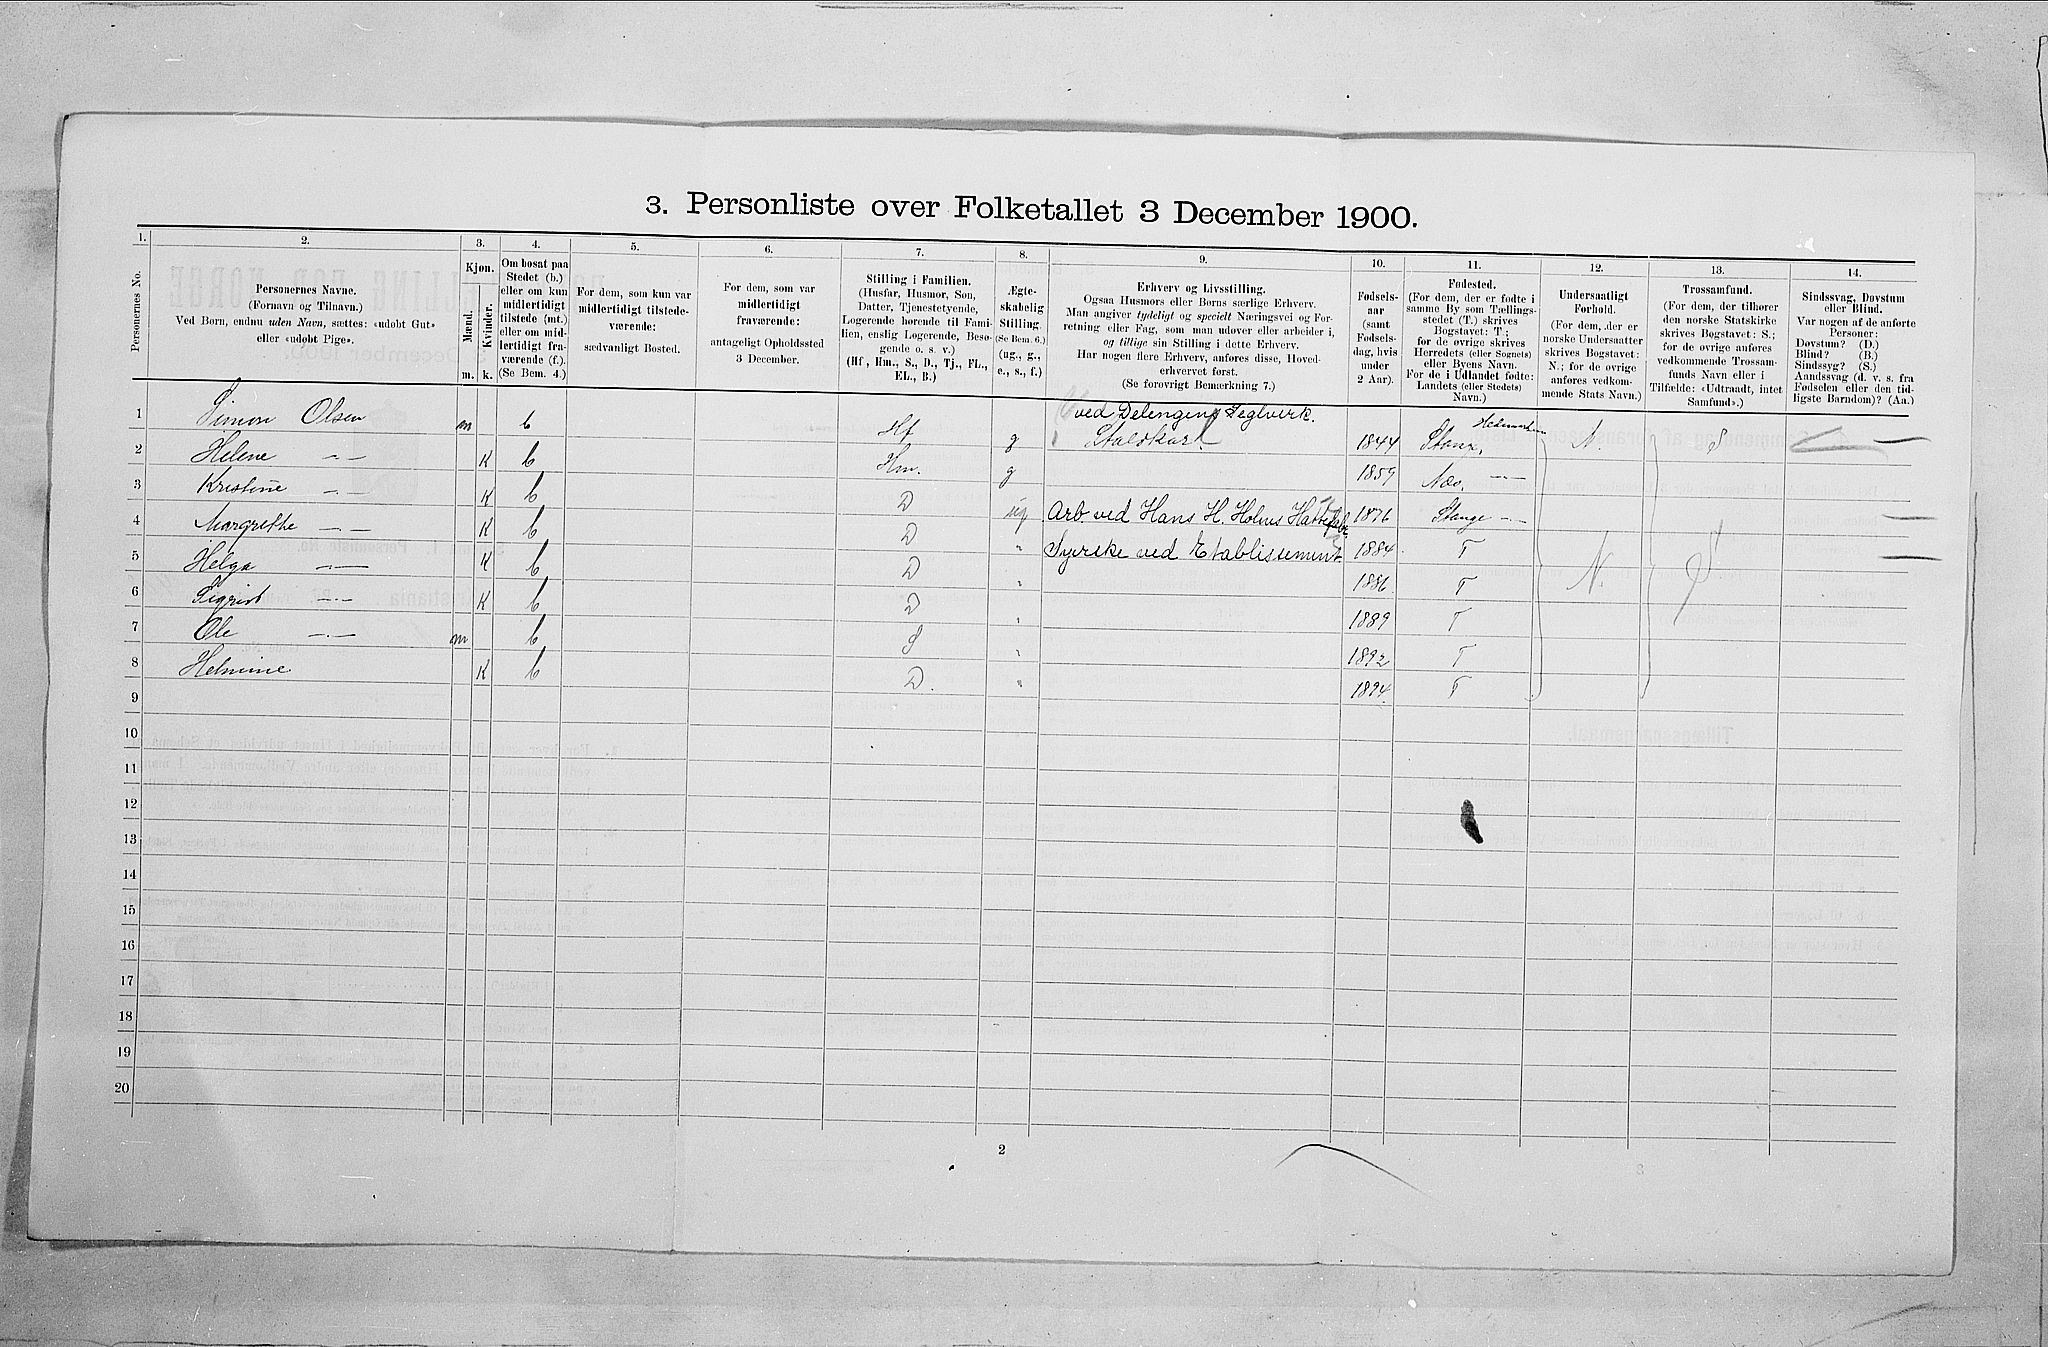 3. Personliste over Folketallet 3 December 1900.
1. 2. 3. 4. 5. 6. 7. 8. 9. 10. 11. 12. 13. 14.
Personernes No.
Personernes Navne.
(Fornavn og Tilnavn.)
Ved Børn, endnu uden Navn, sættes: «udøbt Gut»
eller «udøbt Pige».
Kjøn.
Mænd.
Kvinder.
m. k.
Om bosat paa
Stedet (b.)
eller om kun
midlertidigt
tilstede (mt.)
eller om mid-
lertidigt fra-
værende (f.).
(Se Bem. 4.)
For dem, som kun var
midlertidigt tilstede-
værende:
sædvanligt Bosted.
For dem, som var
midlertidigt
fraværende:
antageligt Opholdssted
3 December.
Stilling i Familien.
(Husfar, Husmor, Søn,
Datter, Tjenestetyende,
Logerende hørende til Fami-
lien, enslig Logerende, Besø-
gende o. s. v.)
(Hf, Hm., S., D., Tj., FL.,
EL., B.)
Ægte-
skabelig
Stilling.
(Se Bem. 6.)
(ug., g.,
e., s., f.)
Erhverv og Livsstilling.
Ogsaa Husmors eller Børns særlige Erhverv.
Man angiver tydeligt og specielt Næringsvei og For-
retning eller Fag, som man udøver eller arbeider i,
og tillige sin Stilling i dette Erhverv.
Har nogen flere Erhverv, anføres disse, Hoved-
erhvervet først.
(Se forøvrigt Bemærkning 7.)
Fødsels-
aar
(samt
Fødsels-
dag, hvis
under
2 Aar).
Fødested.
(For dem, der er fødte i
samme By som Tællings-
stedet (T.) skrives
Bogstavet: T;
for de øvrige skrives
Herredets (eller Sognets)
eller Byens Navn.
For de i Udlandet fødte:
Landets (eller Stedets)
Navn.)
Undersaatligt
Forhold.
(For dem, der er
norske Undersaatter
skrives Bogstavet:
N.; for de øvrige
anføres vedkom-
mende Stats Navn.)
Trossamfund.
(For dem, der tilhører
den norske Statskirke
skrives Bogstavet: S.;
for de øvrige anføres
vedkommende Trossam-
funds Navn eller i
Tilfælde: «Udtraadt, intet
Samfund».)
Sindssvag, Døvstum
eller Blind.
Var nogen af de anførte
Personer:
Døvstum? (D.)
Blind? (B.)
Sindssyg? (S.)
Aandssvag (d. v. s. fra
Fødselen eller den tid-
ligste Barndom)? (Aa.)
1 Simon Olsen m b Hf g ved Delengens Teglverk. Staldkarl 1844 Stange, N. S
2 Helene —"— K b Hm. g 1859 Næs. —"—
3 Kristine —"— K b D ug Arb. ved Hans H. Holms Hattefabr. 1876 Stange —"—
4 Margrethe —"— K b D " Syerske ved Etablissement 1884 T
5 Helga —"— K b D " 1886 T N. S
6 Sigrid —"— K b D " 1889 T
7 Ole —"— m b S " 1892 T
8 Helmine K b D. " 1894. T
9
10
11
12
13
14
15
16
17
18
19
20
2